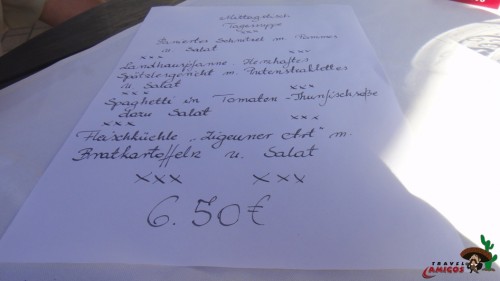 Mittagstisch
Tagessuppe
xxx
Paniertes Schnitzel m. Pommes
u. Salat
xxx xxx
Landhauspfanne - Herzhaftes
Spätzlegericht m. Putensteaklettes
u. Salat
xxx xxx
Spaghetti in Tomaten - Thunfischsoße
dazu Salat
xxx xxx
Fleischküchle "Zigeuner Art" m.
Bratkartoffeln u. Salat
xxx xxx
6.50€
TRAVEL
AMIGOS